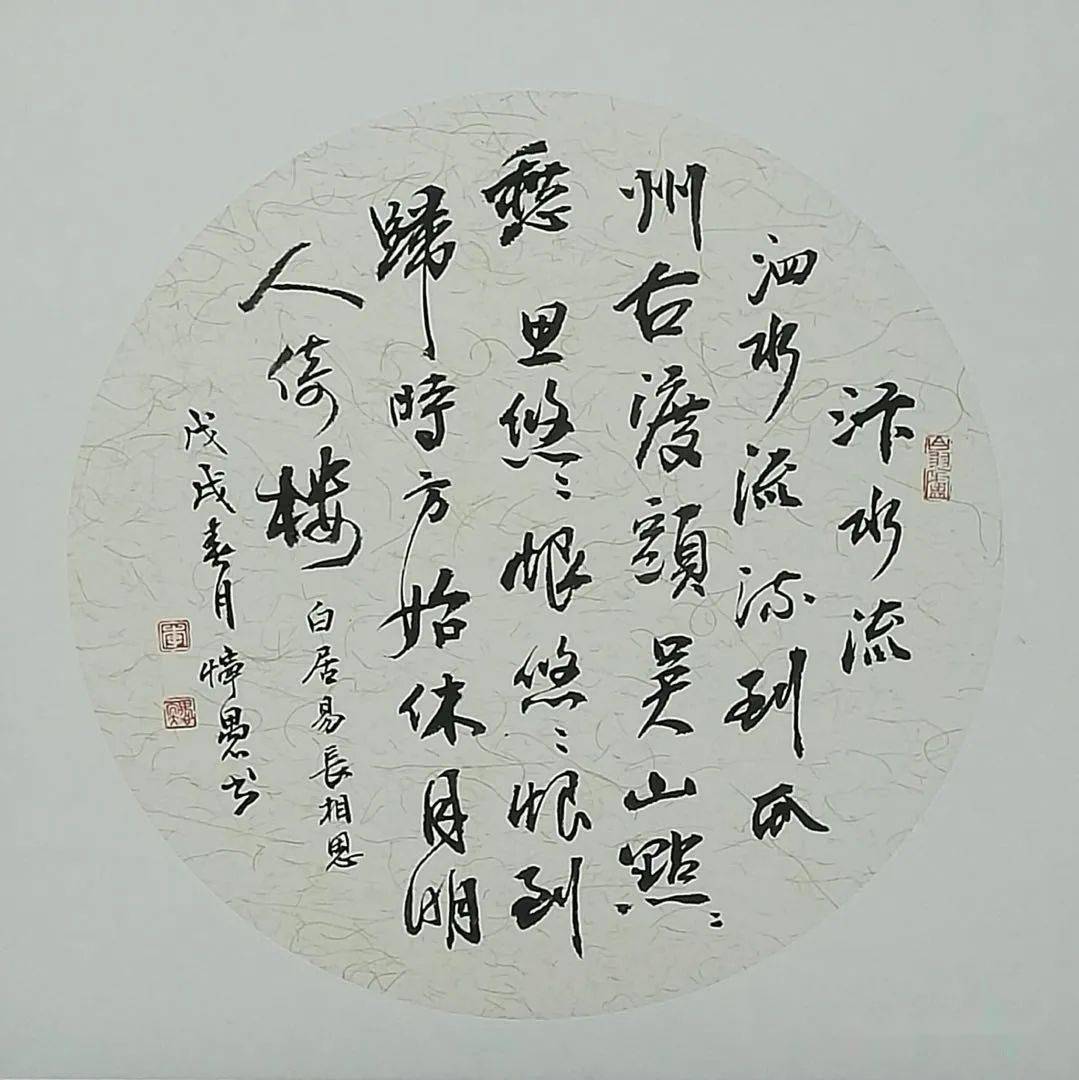 汴水流
泗水流流到瓜
州古渡頭吴山點〻
愁思悠〻恨悠〻恨到
歸時方始休月明
人倚樓
白居易長相思
戊戌春月愚书